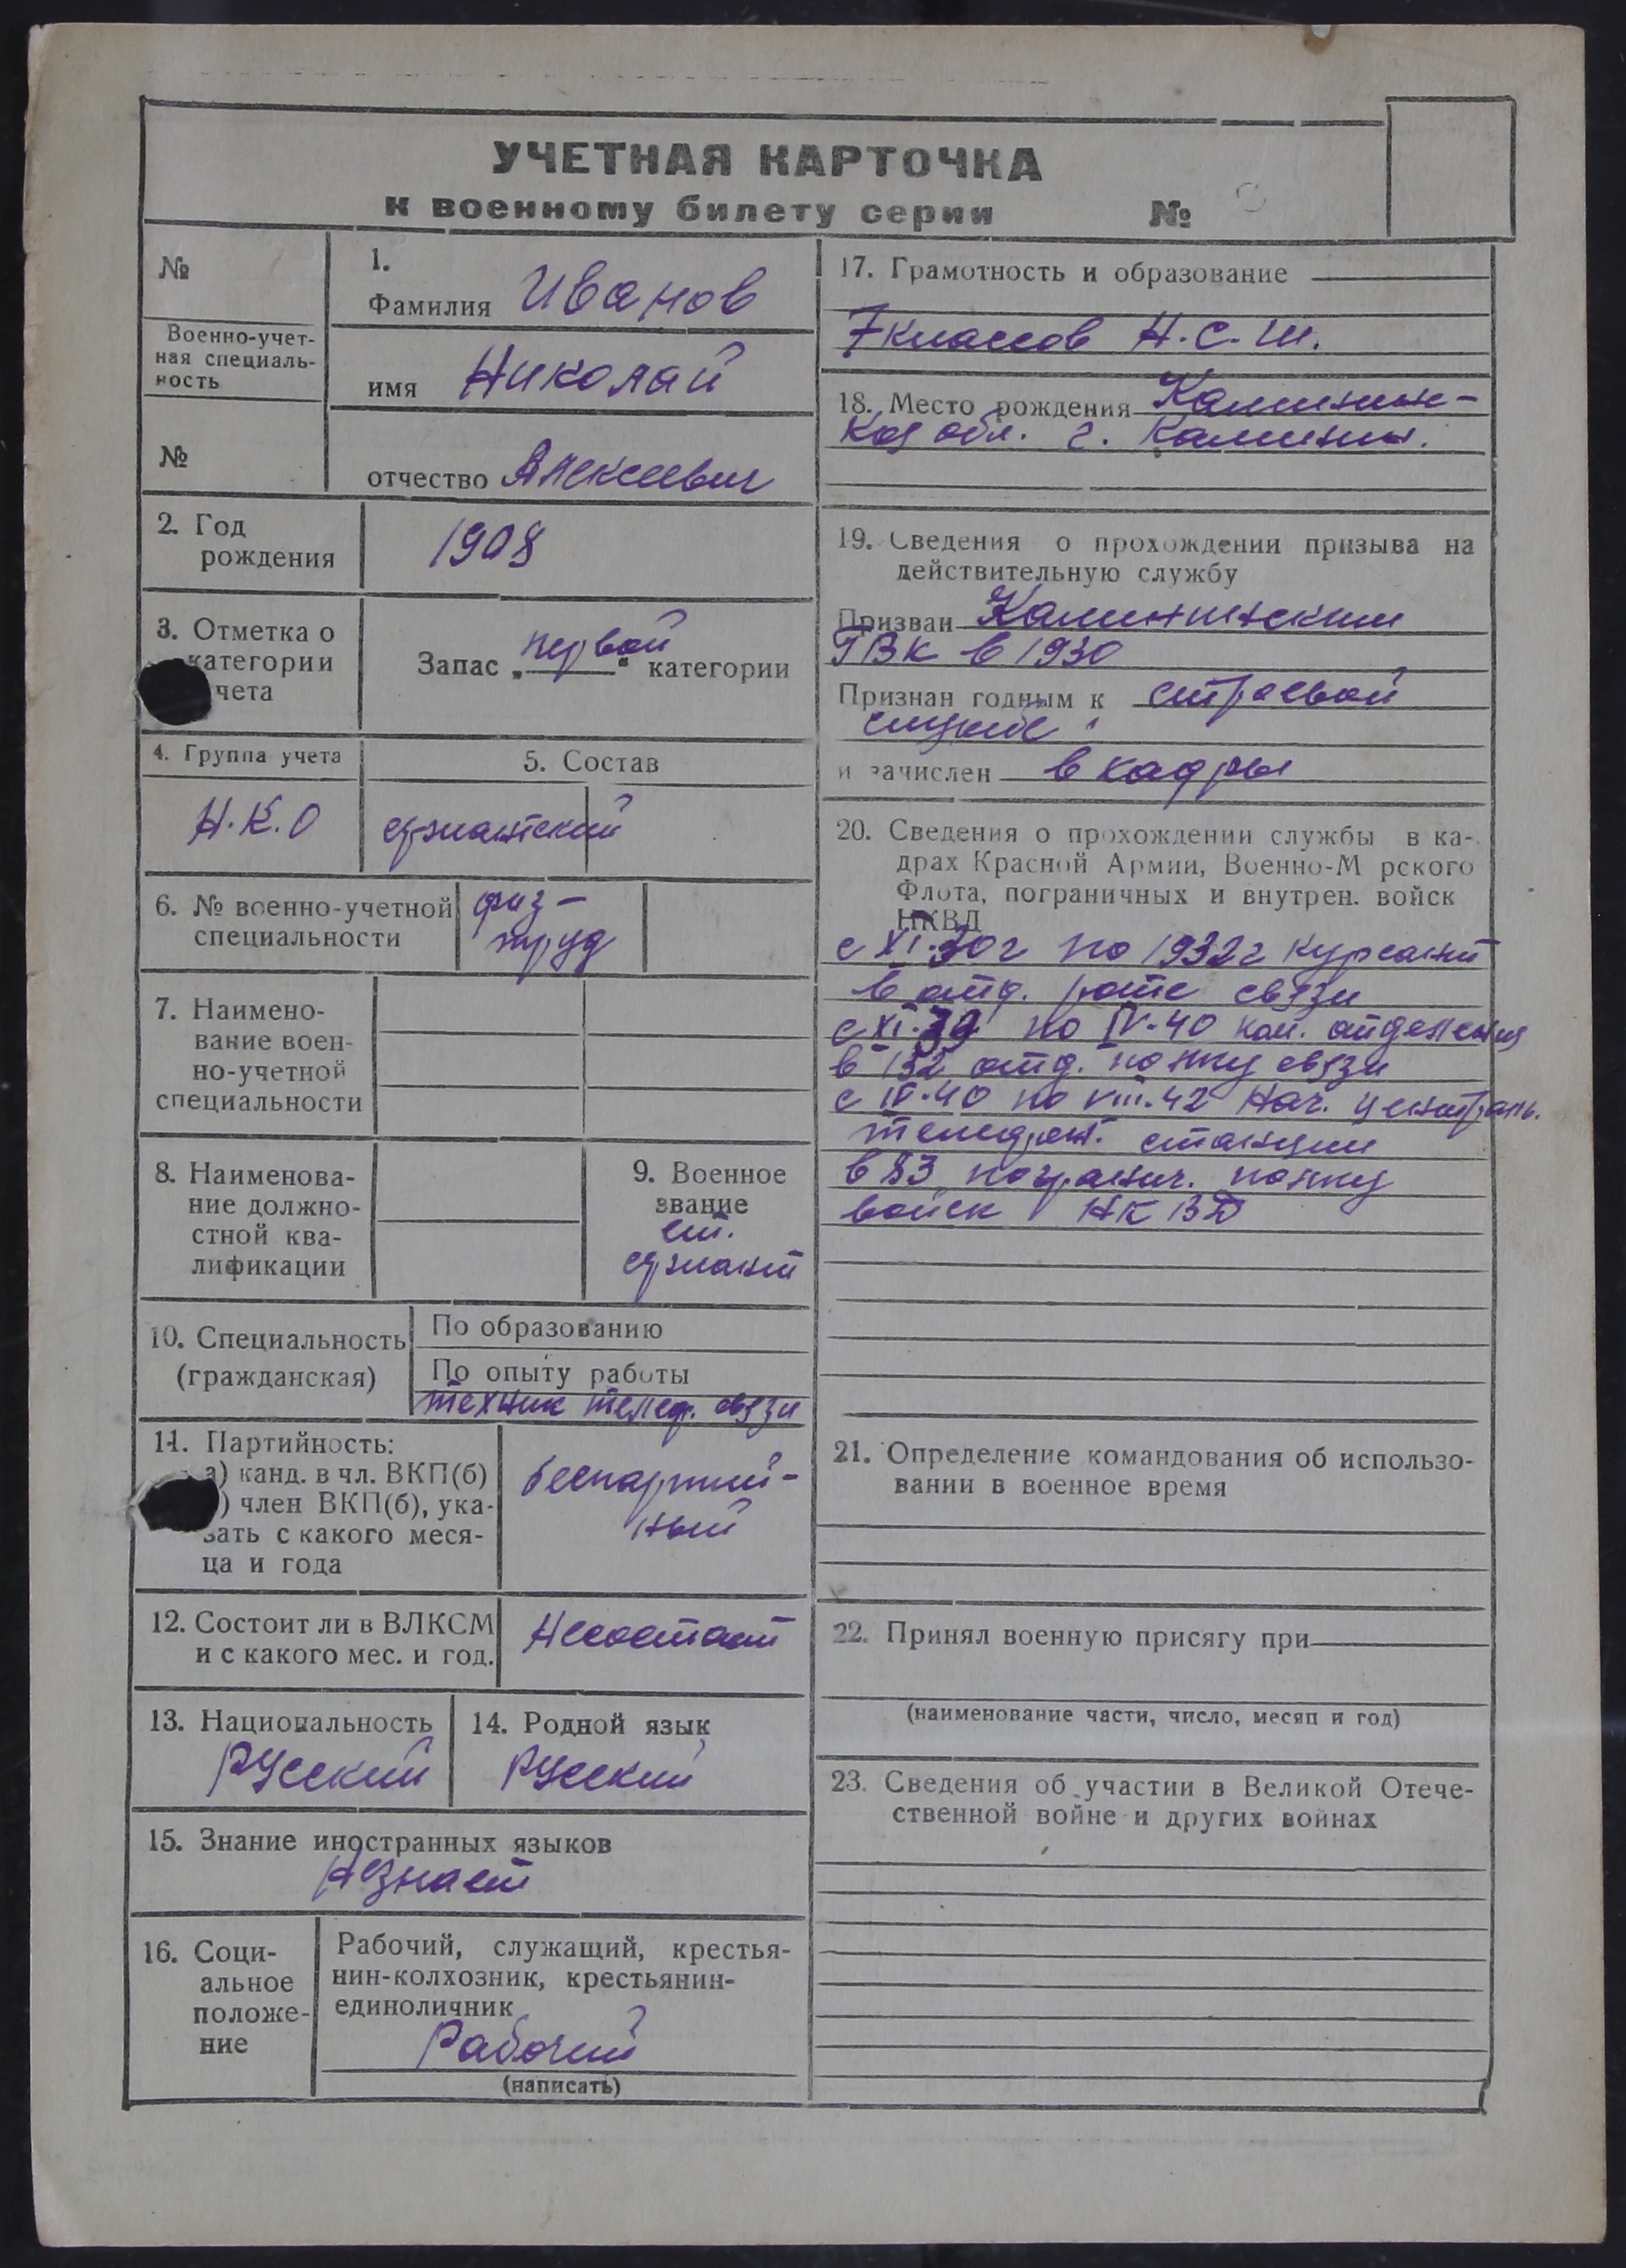 УЧЕТНАЯ КАРТОЧКА
к военному билету серии №
№
Военно-учет-
ная специаль-
ность
№
1.
Фамилия Иванов
имя Николай
отчество Алексеевич
2. Год
рождения
1908
3. Отметка о
категории
чета
Запас „первой“ категории
4. Группа учета
Н.К.О
5. Состав
сержантский
6. № военно-учетной
специальности
физ-
труд
7. Наимено-
вание воен-
но-учетной
специальности
8. Наименова-
ние должно-
стной ква-
лификации
9. Военное
звание
ст.
сержант
10. Специальность
(гражданская)
По образованию
По опыту работы
техник телеф. связи
11. Партийность:
а) канд. в чл. ВКП(б)
) член ВКП(б), ука-
зать с какого меся-
ца и года
беспартий-
ный
12. Состоит ли в ВЛКСМ
и с какого мес. и год.
Несостоит
13. Национальность
Русский
14. Родной язык
Русский
15. Знание иностранных языков
Незнает
16. Соци-
альное
положе-
ние
Рабочий, служащий, крестья-
нин-колхозник, крестьянин-
единоличник
Рабочий
(написать)
17. Грамотность и образование
7 классов Н.С.Ш.
18. Место рождения Калининс-
кая обл. г. Калинин.
19. Сведения о прохождении призыва на
действительную службу
Призван Калининским
ГВК в 1930
Признан годным к строевой
службе
и зачислен в кадры
20. Сведения о прохождении службы в ка-
драх Красной Армии, Военно-М рского
Флота, пограничных и внутрен. войск
НКВД
с XI.30г по 1932г курсант
в отд. роте связи
с XI.39 по IV.40 ком. отделения
в 132 отд. полку связи
с IV.40 по VIII.42 Нач. централь.
телефон. станции
в 83 погранич. полку
войск НКВД
21. Определение командования об использо-
вании в военное время
22. Принял военную присягу при
(наименование части, число, месяц и год)
23. Сведения об участии в Великой Отече-
ственной войне и других войнах